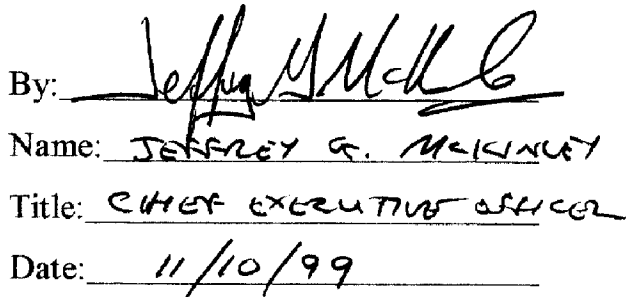 By: Jeffrey G McKinley
Name: JEFFREY G. McKINLEY
Title: CHIEF EXECUTIVE OFFICER
Date: 11/10/99